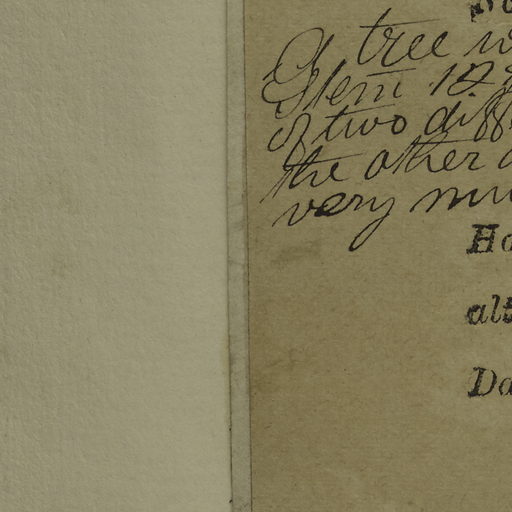 A tree
Stem 12
of two diff
the other
very mu
Ha
alt
Da